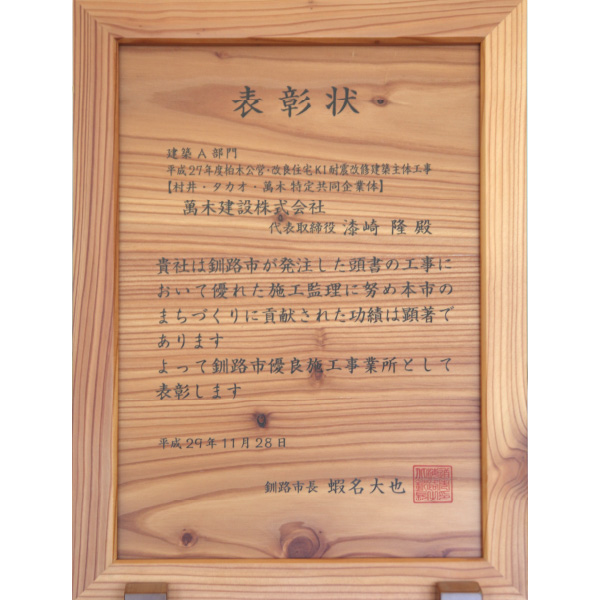 表彰状
建築A部門
平成29年度柏木公営・改良住宅K1耐震改修建築主体工事
【村井・タカオ・萬木 特定共同企業体】
萬木建設株式会社
代表取締役 漆崎 隆 殿
貴社は釧路市が発注した頭書の工事に
おいて優れた施工監理に努め本市の
まちづくりに貢献された功績は顕著で
あります
よって釧路市優良施工事業所として
表彰します
平成29年11月28日
釧路市長 蝦名大也